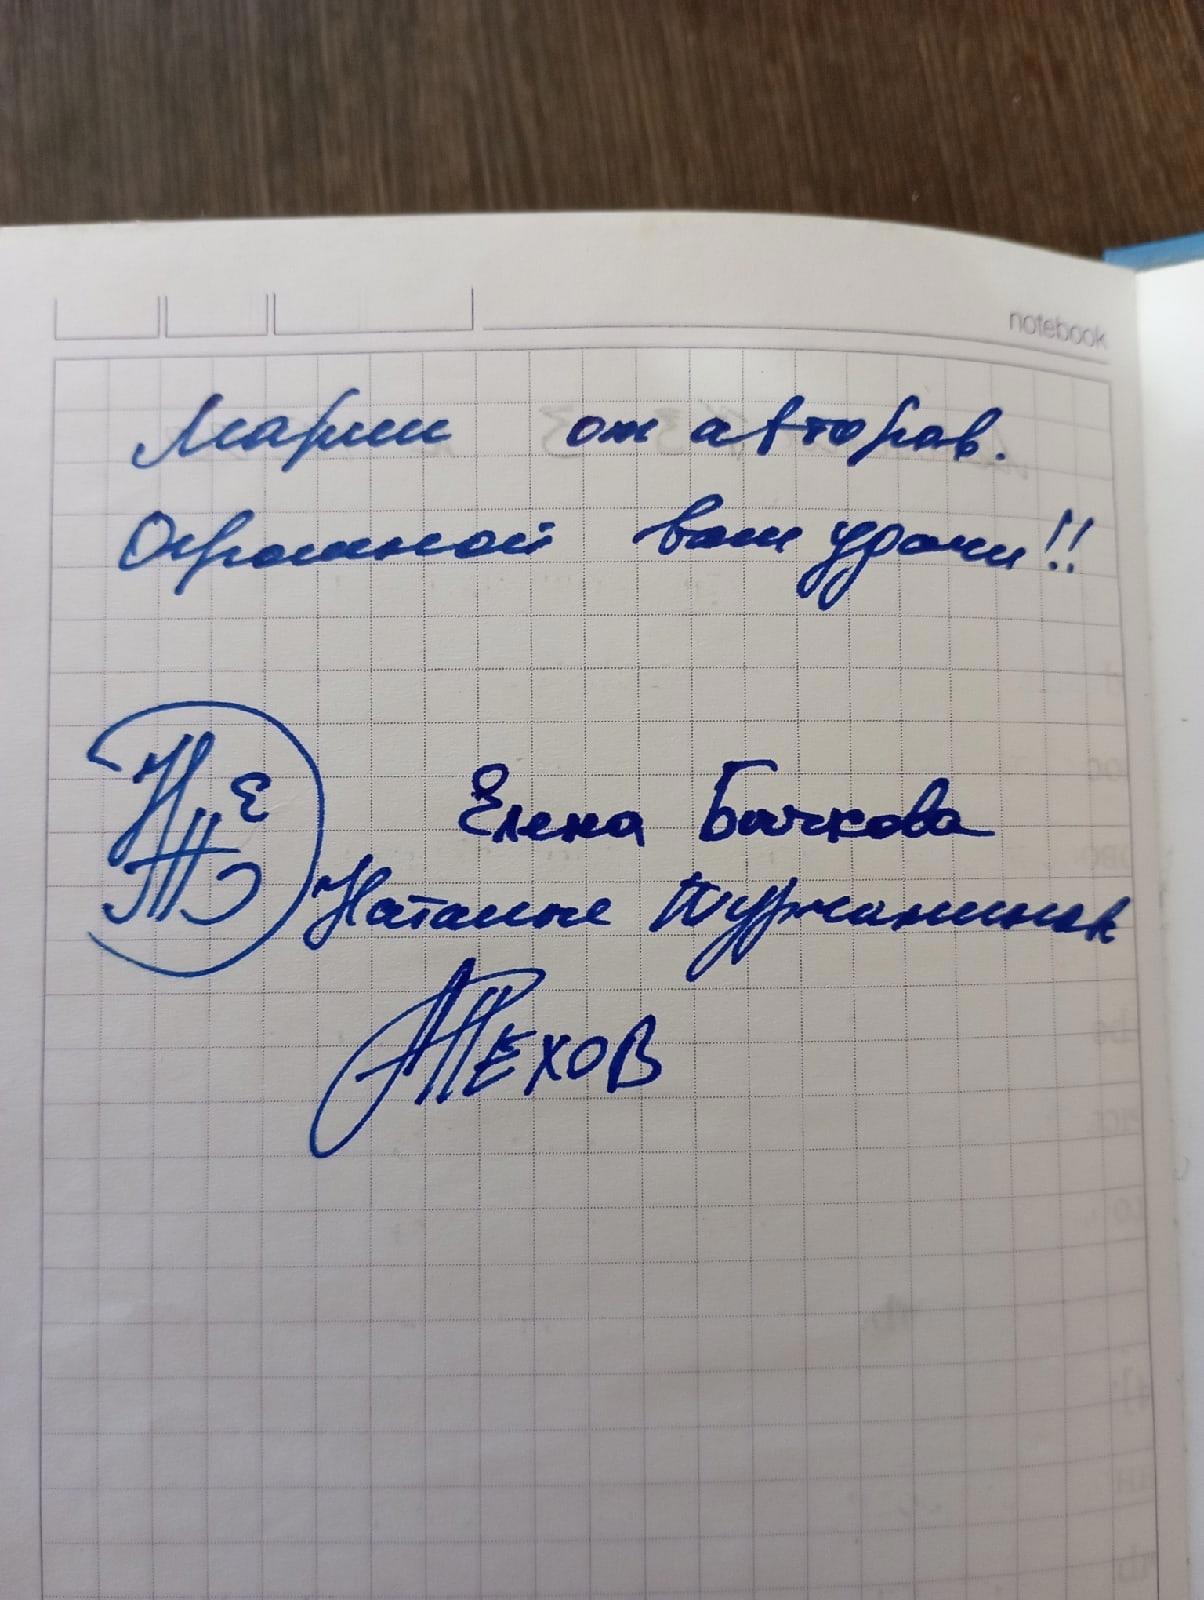 notebook
Марии от авторов.
Огромной вам удачи!!
Елена Бычкова
Наталье Турчанинова
АТЕХОВ